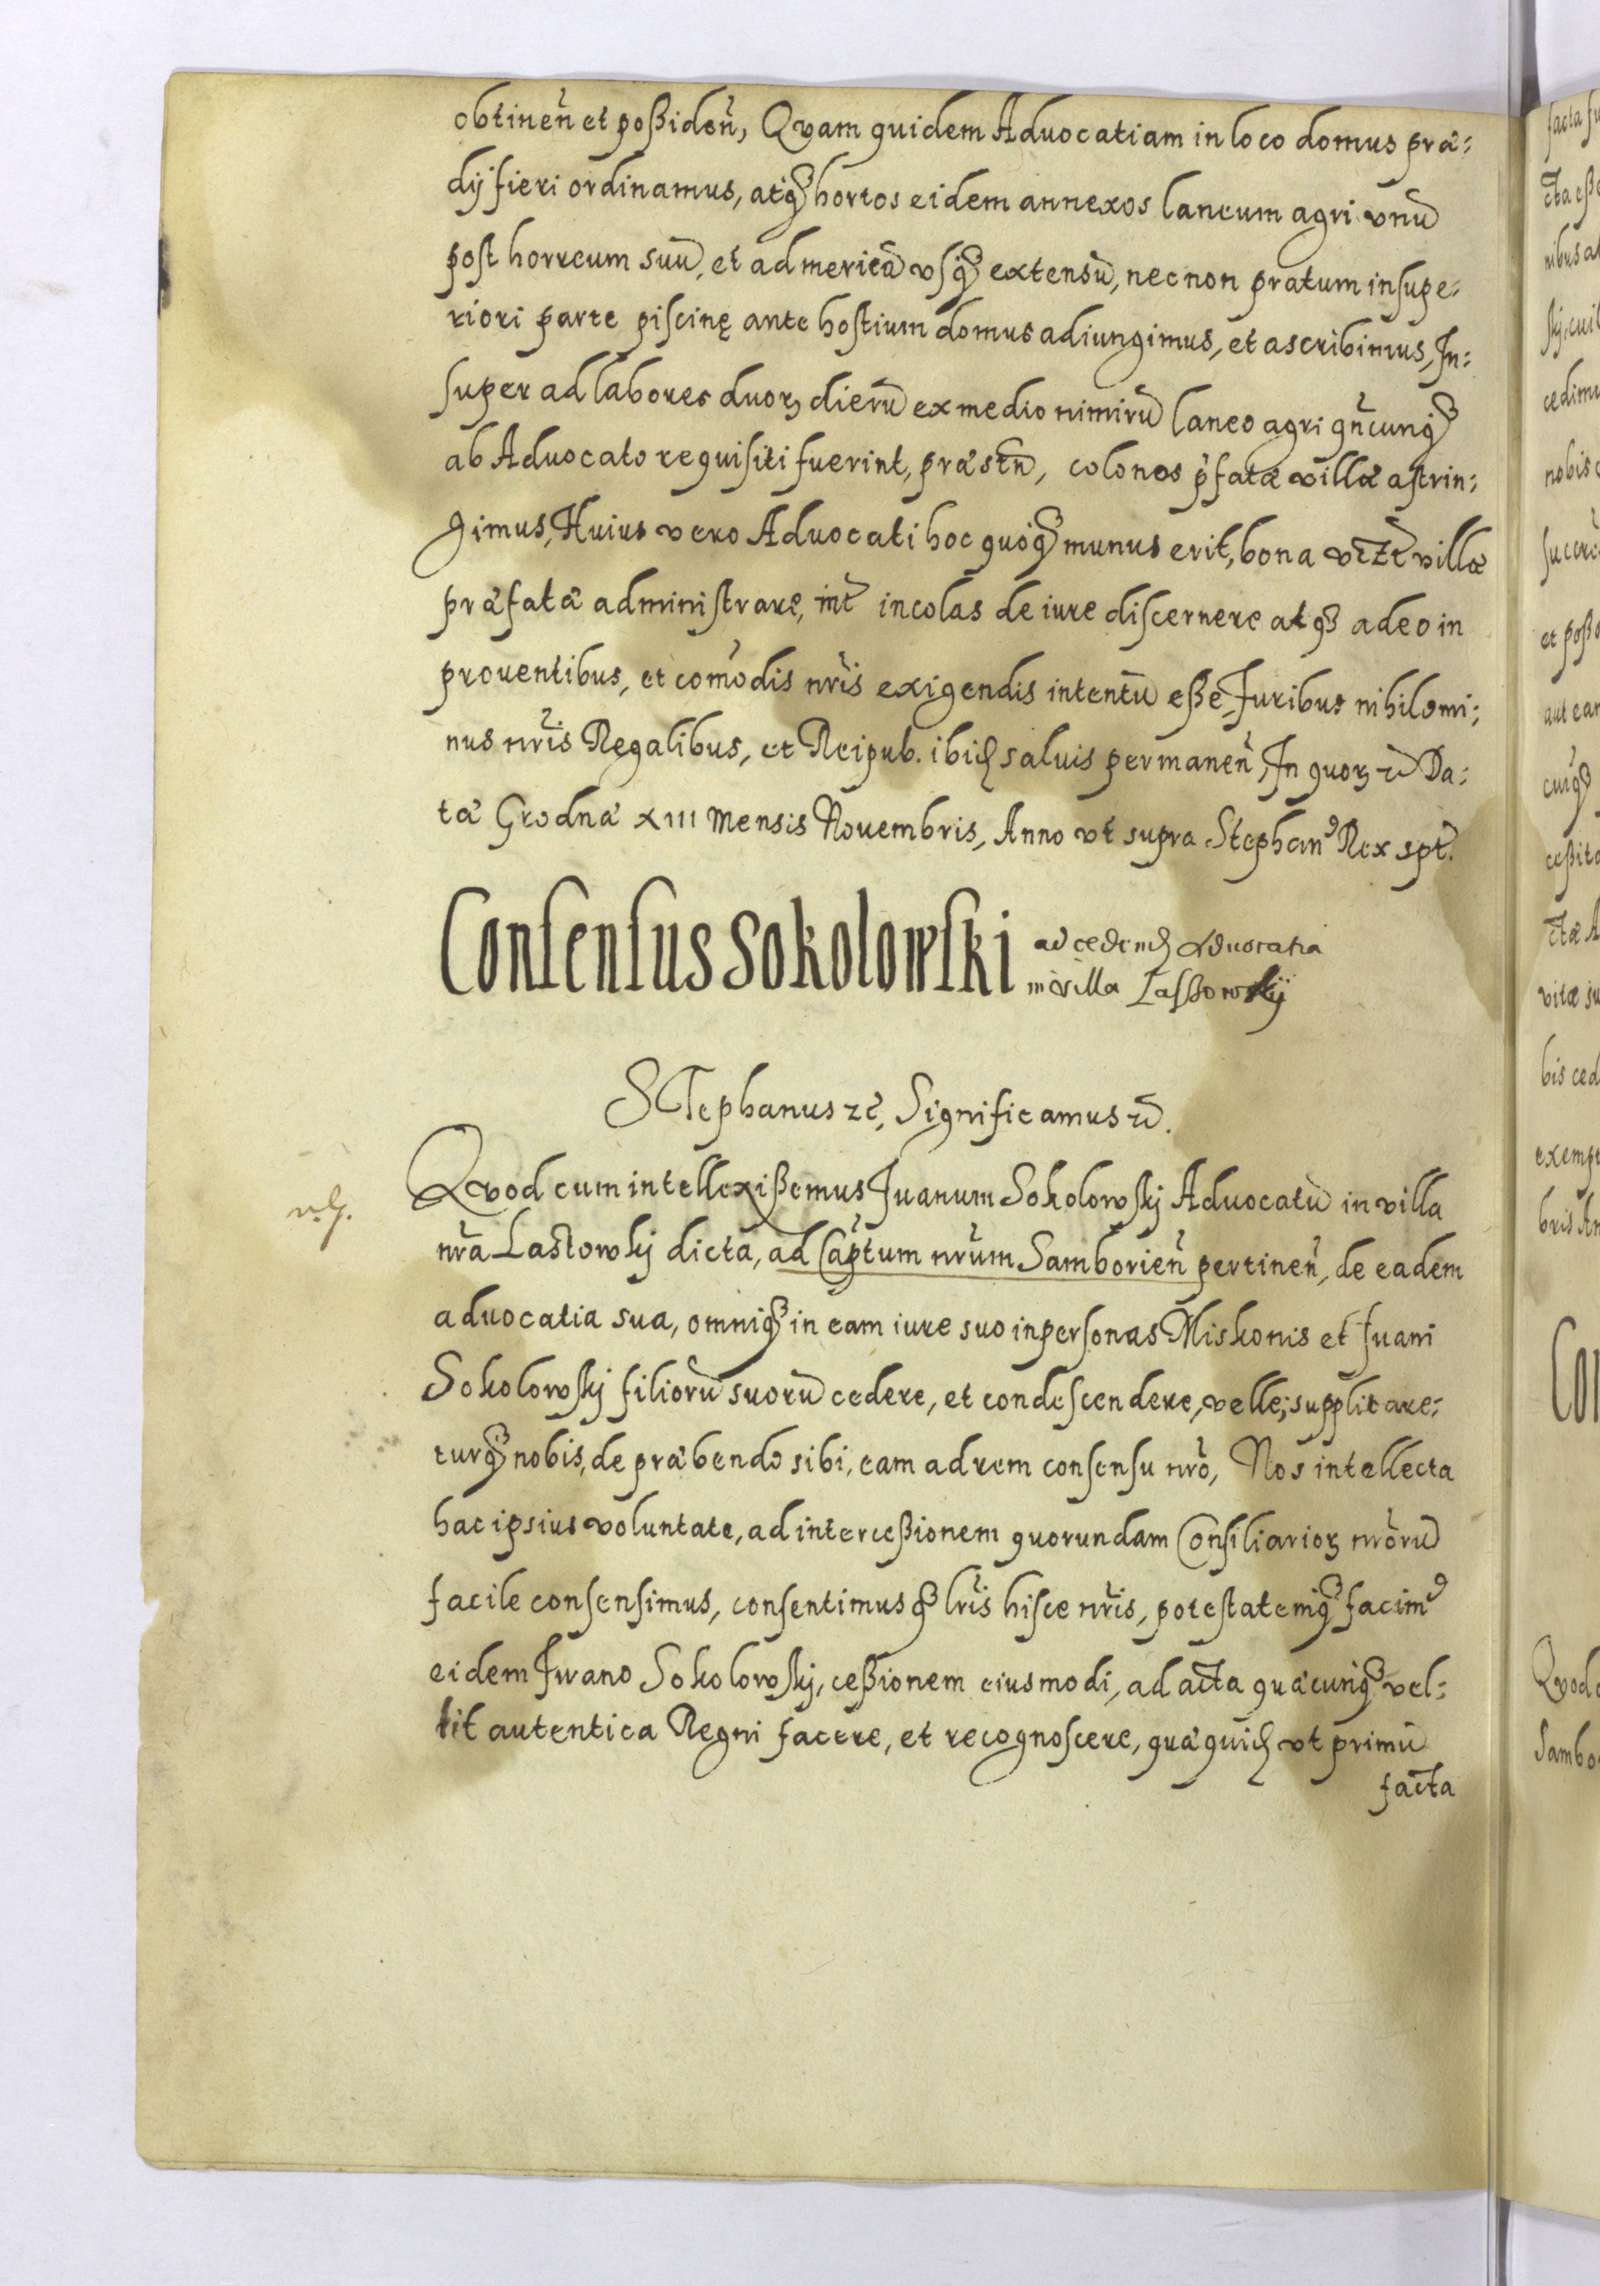 obtineñ et poßideñ, Qvam quidem Aduocatiam in loco domus præ=
dij fieri ordinamus, atq₃ hortos eidem annexos laneum agri vnū
post horreum suū, et ad mericā vsq₃ extensū, nec non pratum in supe=
riori parte piscinę ante hostium domus adiungimus, et ascribimus, In=
super ad labores duorꝫ dierū ex medio nimirū laneo agri qñcunq₃
ab Aduocato requisiti fuerint, præstñ, colonos p̃fatæ villæ astrin=
gimus, Huius vero Aduocati hoc quoq₃ munus erit, bona vtꝫt villæ
præfatæ administrare, int̃ incolas de iure discernere atq₃ adeo in
prouentibus, et com̃odis nr̃is exigendis intentū eße, Iuribus nihilomi=
nus nr̃is Regalibus, et Reipub. ibid saluis permaneñ, In quorꝫ ꝛc̄ Da=
tæ Grodnæ XIII mensis Nouembris, Anno vt supra Stephanꝰ Rex spt̃.
Consensus Sokolowski ad cedend Aduocatia
in villa Laskowskij
STephanus ꝛc̄, Significamus ꝛc̄.
Qvod cum intellexißemus Iuanum Sokolowskj Aduocatū in villa
nr̃a Lastowskj dicta, ad Cap̃tum nr̃um Samborieñ pertineñ, de eadem
aduocatia sua, omniq₃ in eam iure suo in personas Miskonis et Iuani
Sokolowskj filiorū suorū cedere, et condescendere, velle; supplicare=
turq₃ nobis, de præbendo sibi, eam ad rem consensu nr̃o, Nos intellecta
hac ipsius voluntate, ad interceßionem quorundam Consiliariorꝫ nr̃orū
facile consensimus, consentimusq₃ lr̃is hisce nr̃is, potestatemq₃ facimꝰ
eidem Iwano Sokolowskj, ceßionem eiusmodi, ad acta quæcunq₃ vel=
lit autentica Regni facere, et recognoscere, quæ quid vt primū
facta